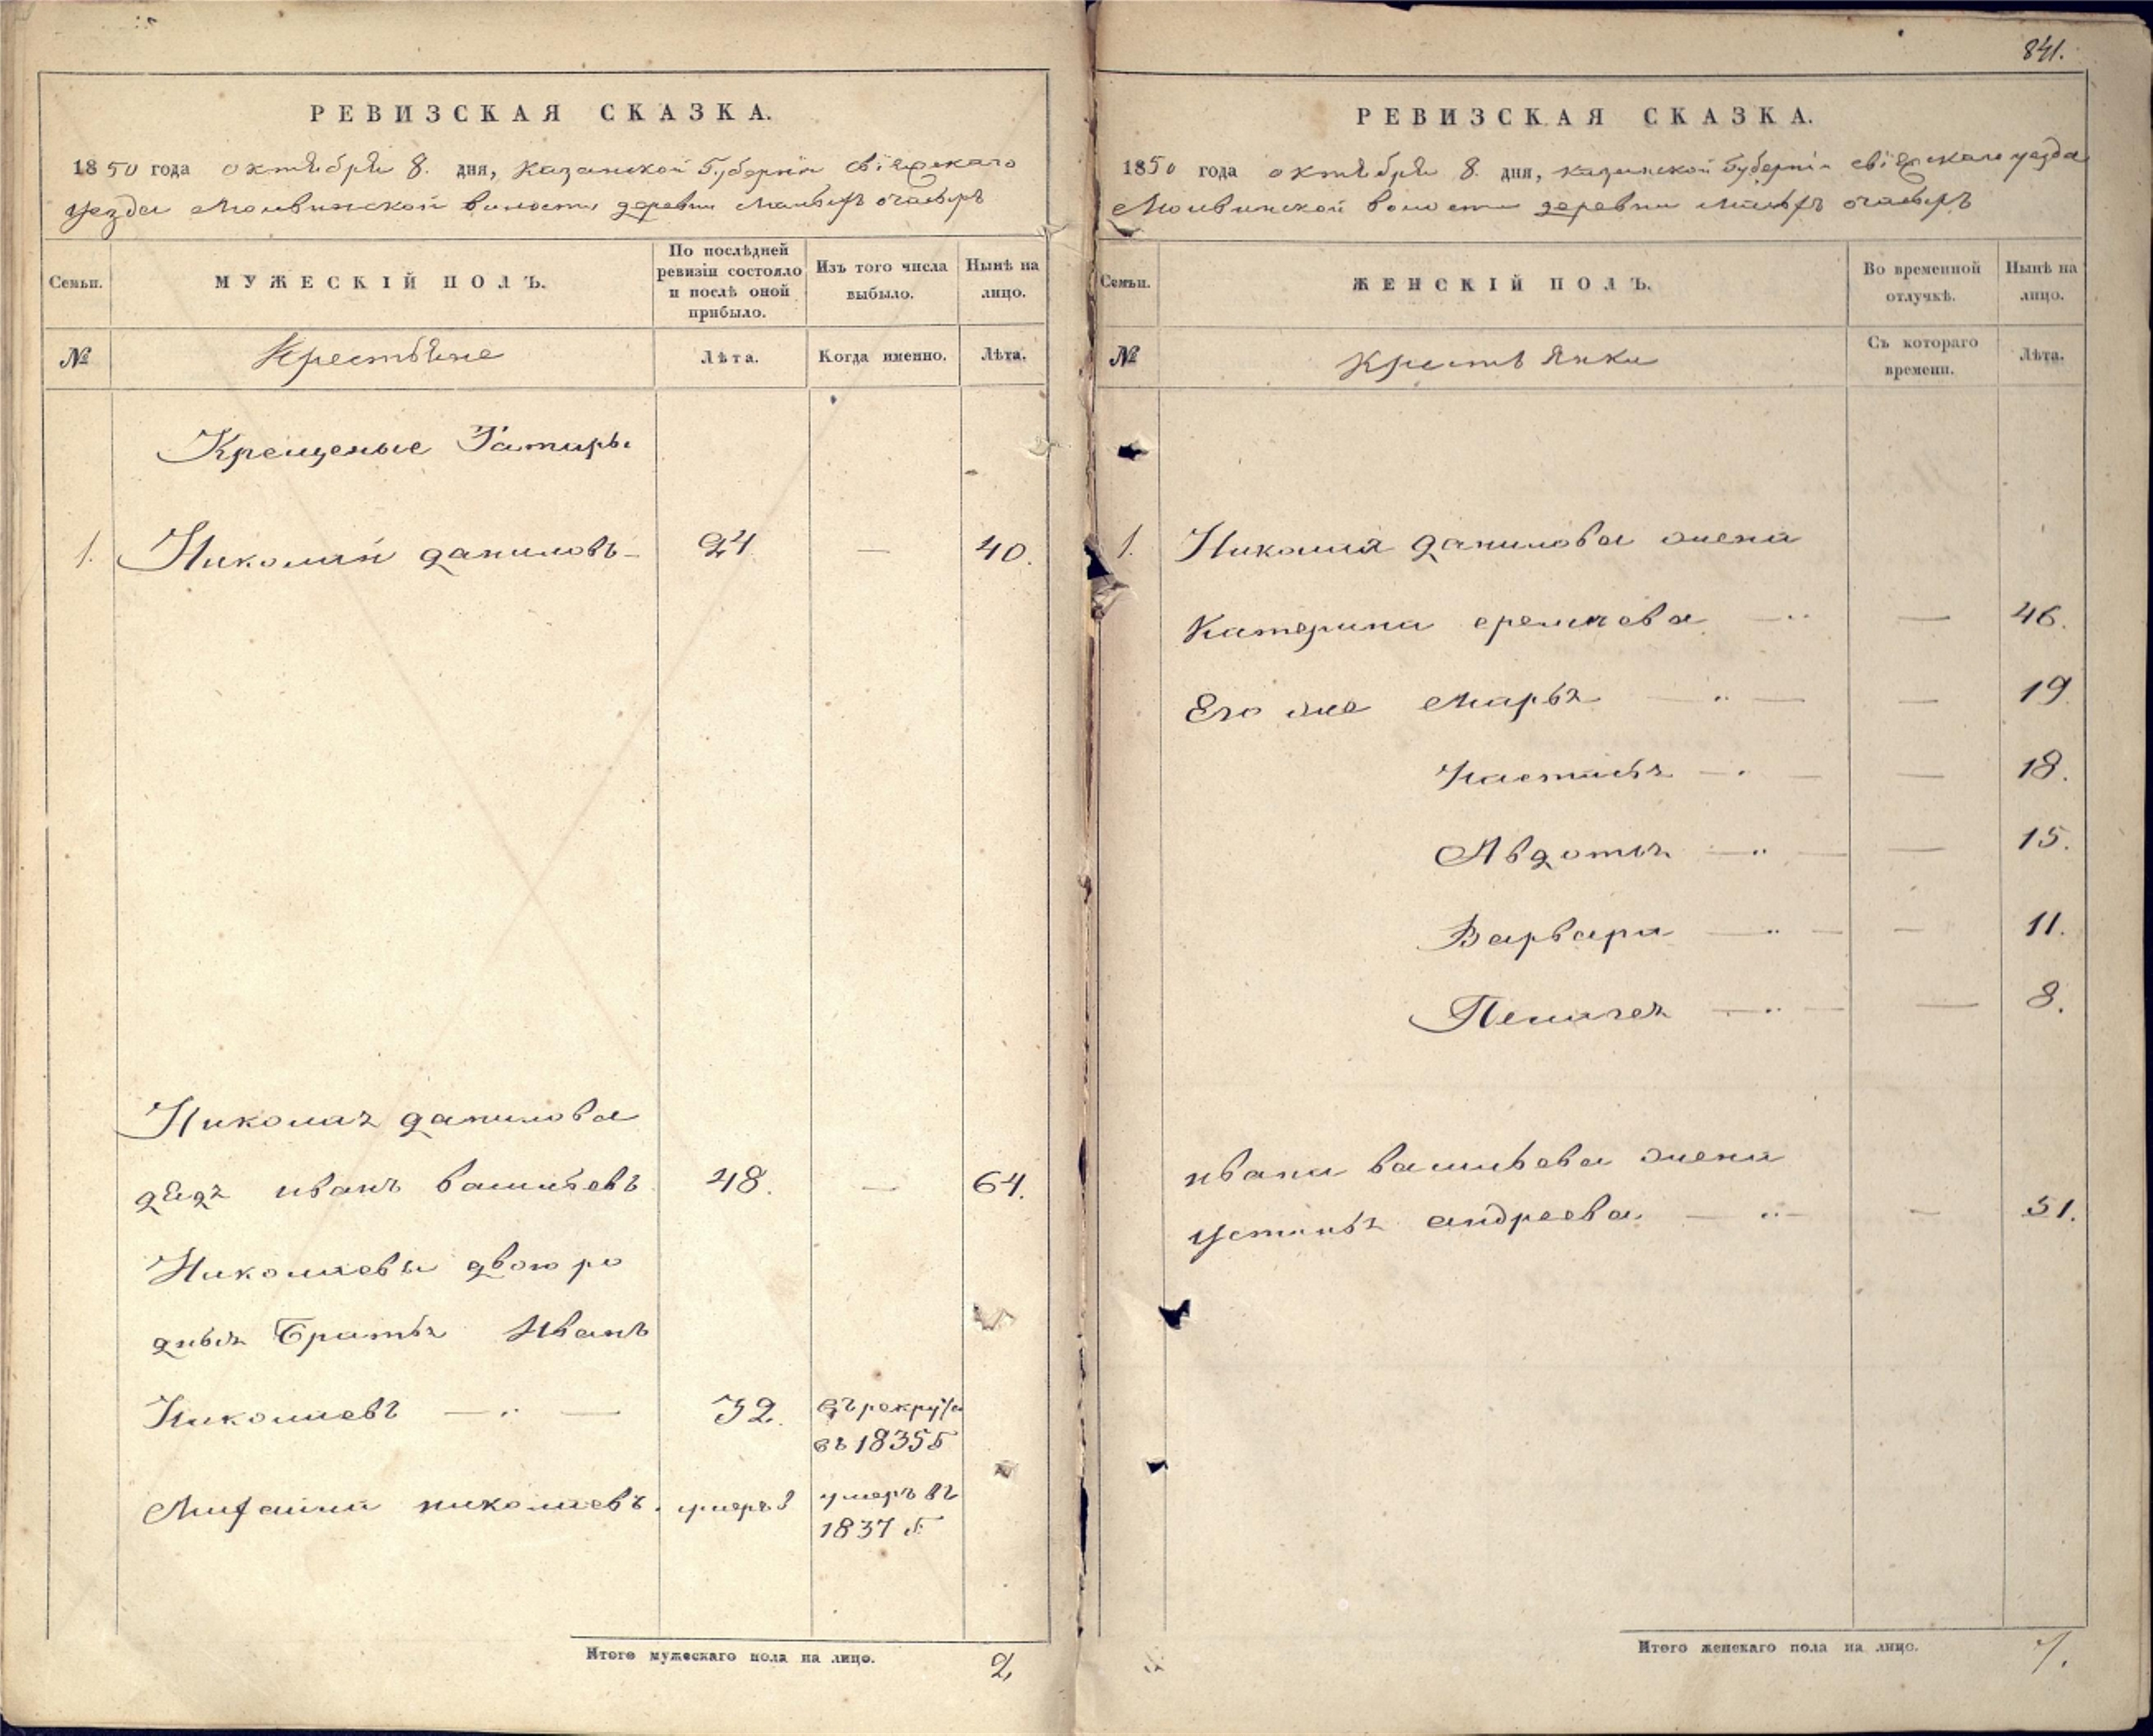 841.
РЕВИЗСКАЯ СКАЗКА.
1850 года октября 8. дня, Казанской Губерніи Свіяжскаго
уезда Молвинской волости деревни Малыхъ очасыръ
Семьи.
МУЖЕСКІЙ ПОЛЪ.
По послѣдней ревизіи состояло и послѣ оной прибыло.
Изъ того числа выбыло.
Нынѣ на лицо.
№
Крестьяне
Лѣта.
Когда именно.
Лѣта.
Крещеные Татары
1. Николай даниловъ 24 — 40.
Николая данилова
дядя иванъ васильевъ 48. — 64.
Николаевы двоюро
дныя братья Иванъ
Николаевъ — " — 32. въ рекруты
въ 1835 г
николаевъ. умеръ въ
1837 г.
Итого мужескаго пола на лицо. 2
РЕВИЗСКАЯ СКАЗКА.
1850 года октября 8. дня, казанской Губерніи свіяжскаго уезда
Молвинской волости деревни Малыхъ очасыръ
Семьи.
ЖЕНСКІЙ ПОЛЪ.
Во временной отлучкѣ.
Нынѣ на лицо.
№
Крестьянки
Съ котораго времени.
Лѣта.
1. Николая данилова жена
Катерина еремеева — " — 46.
Его же Марья — " — — 19
Настасья — " — — 18.
Авдотья — " — — 15.
Варвара — " — — 11.
Пелагея — " — — 8.
ивана васильева жена
Устинья андреева. — " — — 51.
Итого женскаго пола на лицо. 7.